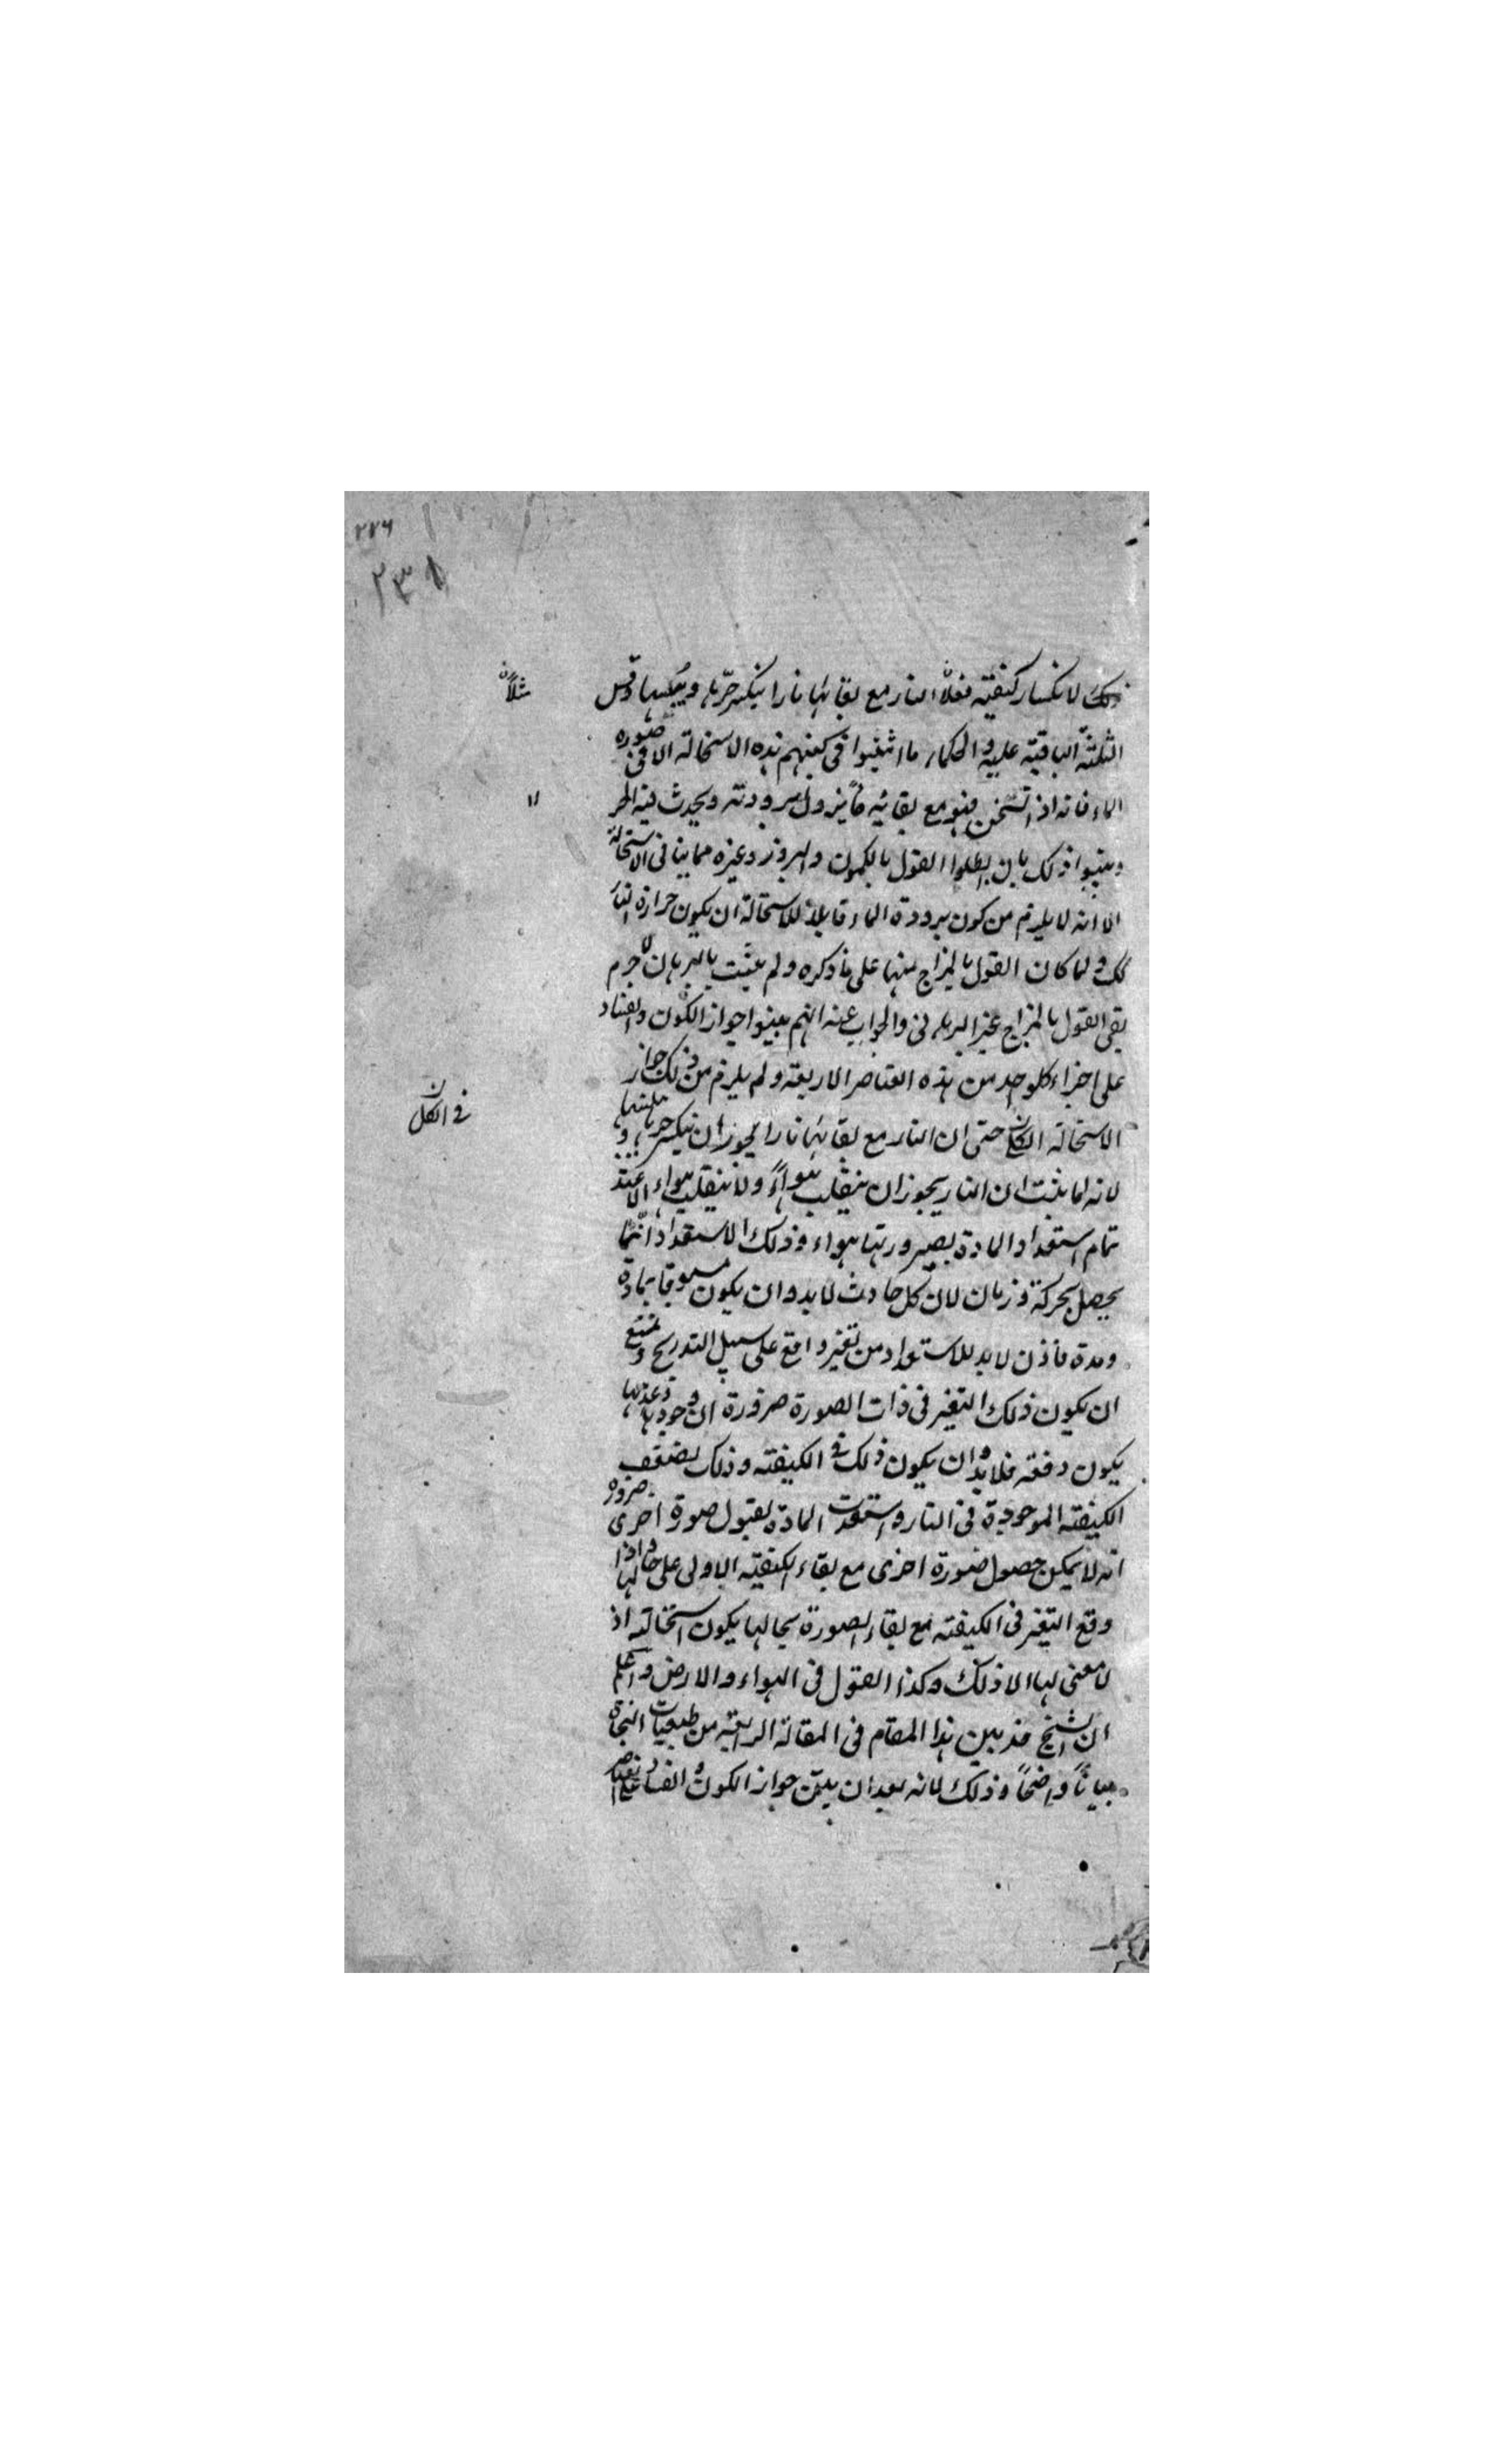 ۲۷۶
۲۳۸
ذلك لانكسار كيفيته فعلاً النار مع بقائها نارا ينكسر حرها ويبسها وقس
مثلاً ن
الثلثة الباقية عليه والحكماء ما اثبتوا فى كتبهم هذه الاستحالة الا فى صورة
الماء فانه اذا تسخن فهو مع بقائه ماً يزول برودته ويحدث فيه الحر
وبينوا ذلك بان ابطلوا القول بالكمون والبروز وغيره مما ينافى الاستحالة
الا انه لا يلزم من كون برودة الماء قابلة للاستحالة ان يكون حرارة النار
كك ولما كان القول بالمزاج مبنيا على ما ذكره ولم يثبت بالبرهان لا جرم
بقى القول بالمزاج غير البرهانى والجواب عنه انهم بينوا جواز الكون والفساد
على اجزاء كلواحد من هذه العناصر الاربعة ولم يلزم من ذلك جواز
فى الكل ن
الاستحالة حتى ان النار مع بقائها نارا يجوز ان ينكسر حرها و
لانه لما يثبت ان النار يجوز ان ينقلب هواءً ولا ينقلب هواء الا عند
تمام استعداد المادة بصيرورتها هواء وذلك الاستعداد انما
يحصل بحركة وزمان لان كل حادث لابد وان يكون مسبوقا بمادة
ومدة فاذن لابد للاستعداد من تغير واقع على سبيل التدريج ويمتنع
ان يكون ذلك التغير فى ذات الصورة ضرورة ان وجودها وعدمها
يكون دفعة فلابد وان يكون ذلك فى الكيفية وذلك بضعف
الكيفية الموجودة فى النار واستعدت المادة لقبول صورة اخرى ضرورة
انه لا يمكن حصول صورة اخرى مع بقاء الكيفية الاولى على حالها واذا
وقع التغير فى الكيفية مع بقاء الصورة بحالها يكون استحالة اذ
لا معنى لها الا ذلك وكذا القول فى الهواء والارض واعلم
ان الشيخ قد بين هذا المقام فى المقالة الرابعة من طبيعيات النجاة
بياناً واضحاً وذلك لانه بعد ان بين جواز الكون والفساد على العناصر